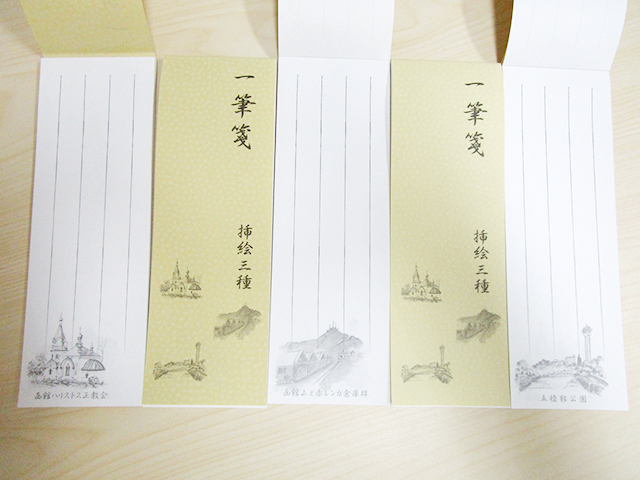 函館ハリストス正教会
一筆箋
挿絵三種
函館山と赤レンガ倉庫群
一筆箋
挿絵三種
五稜郭公園